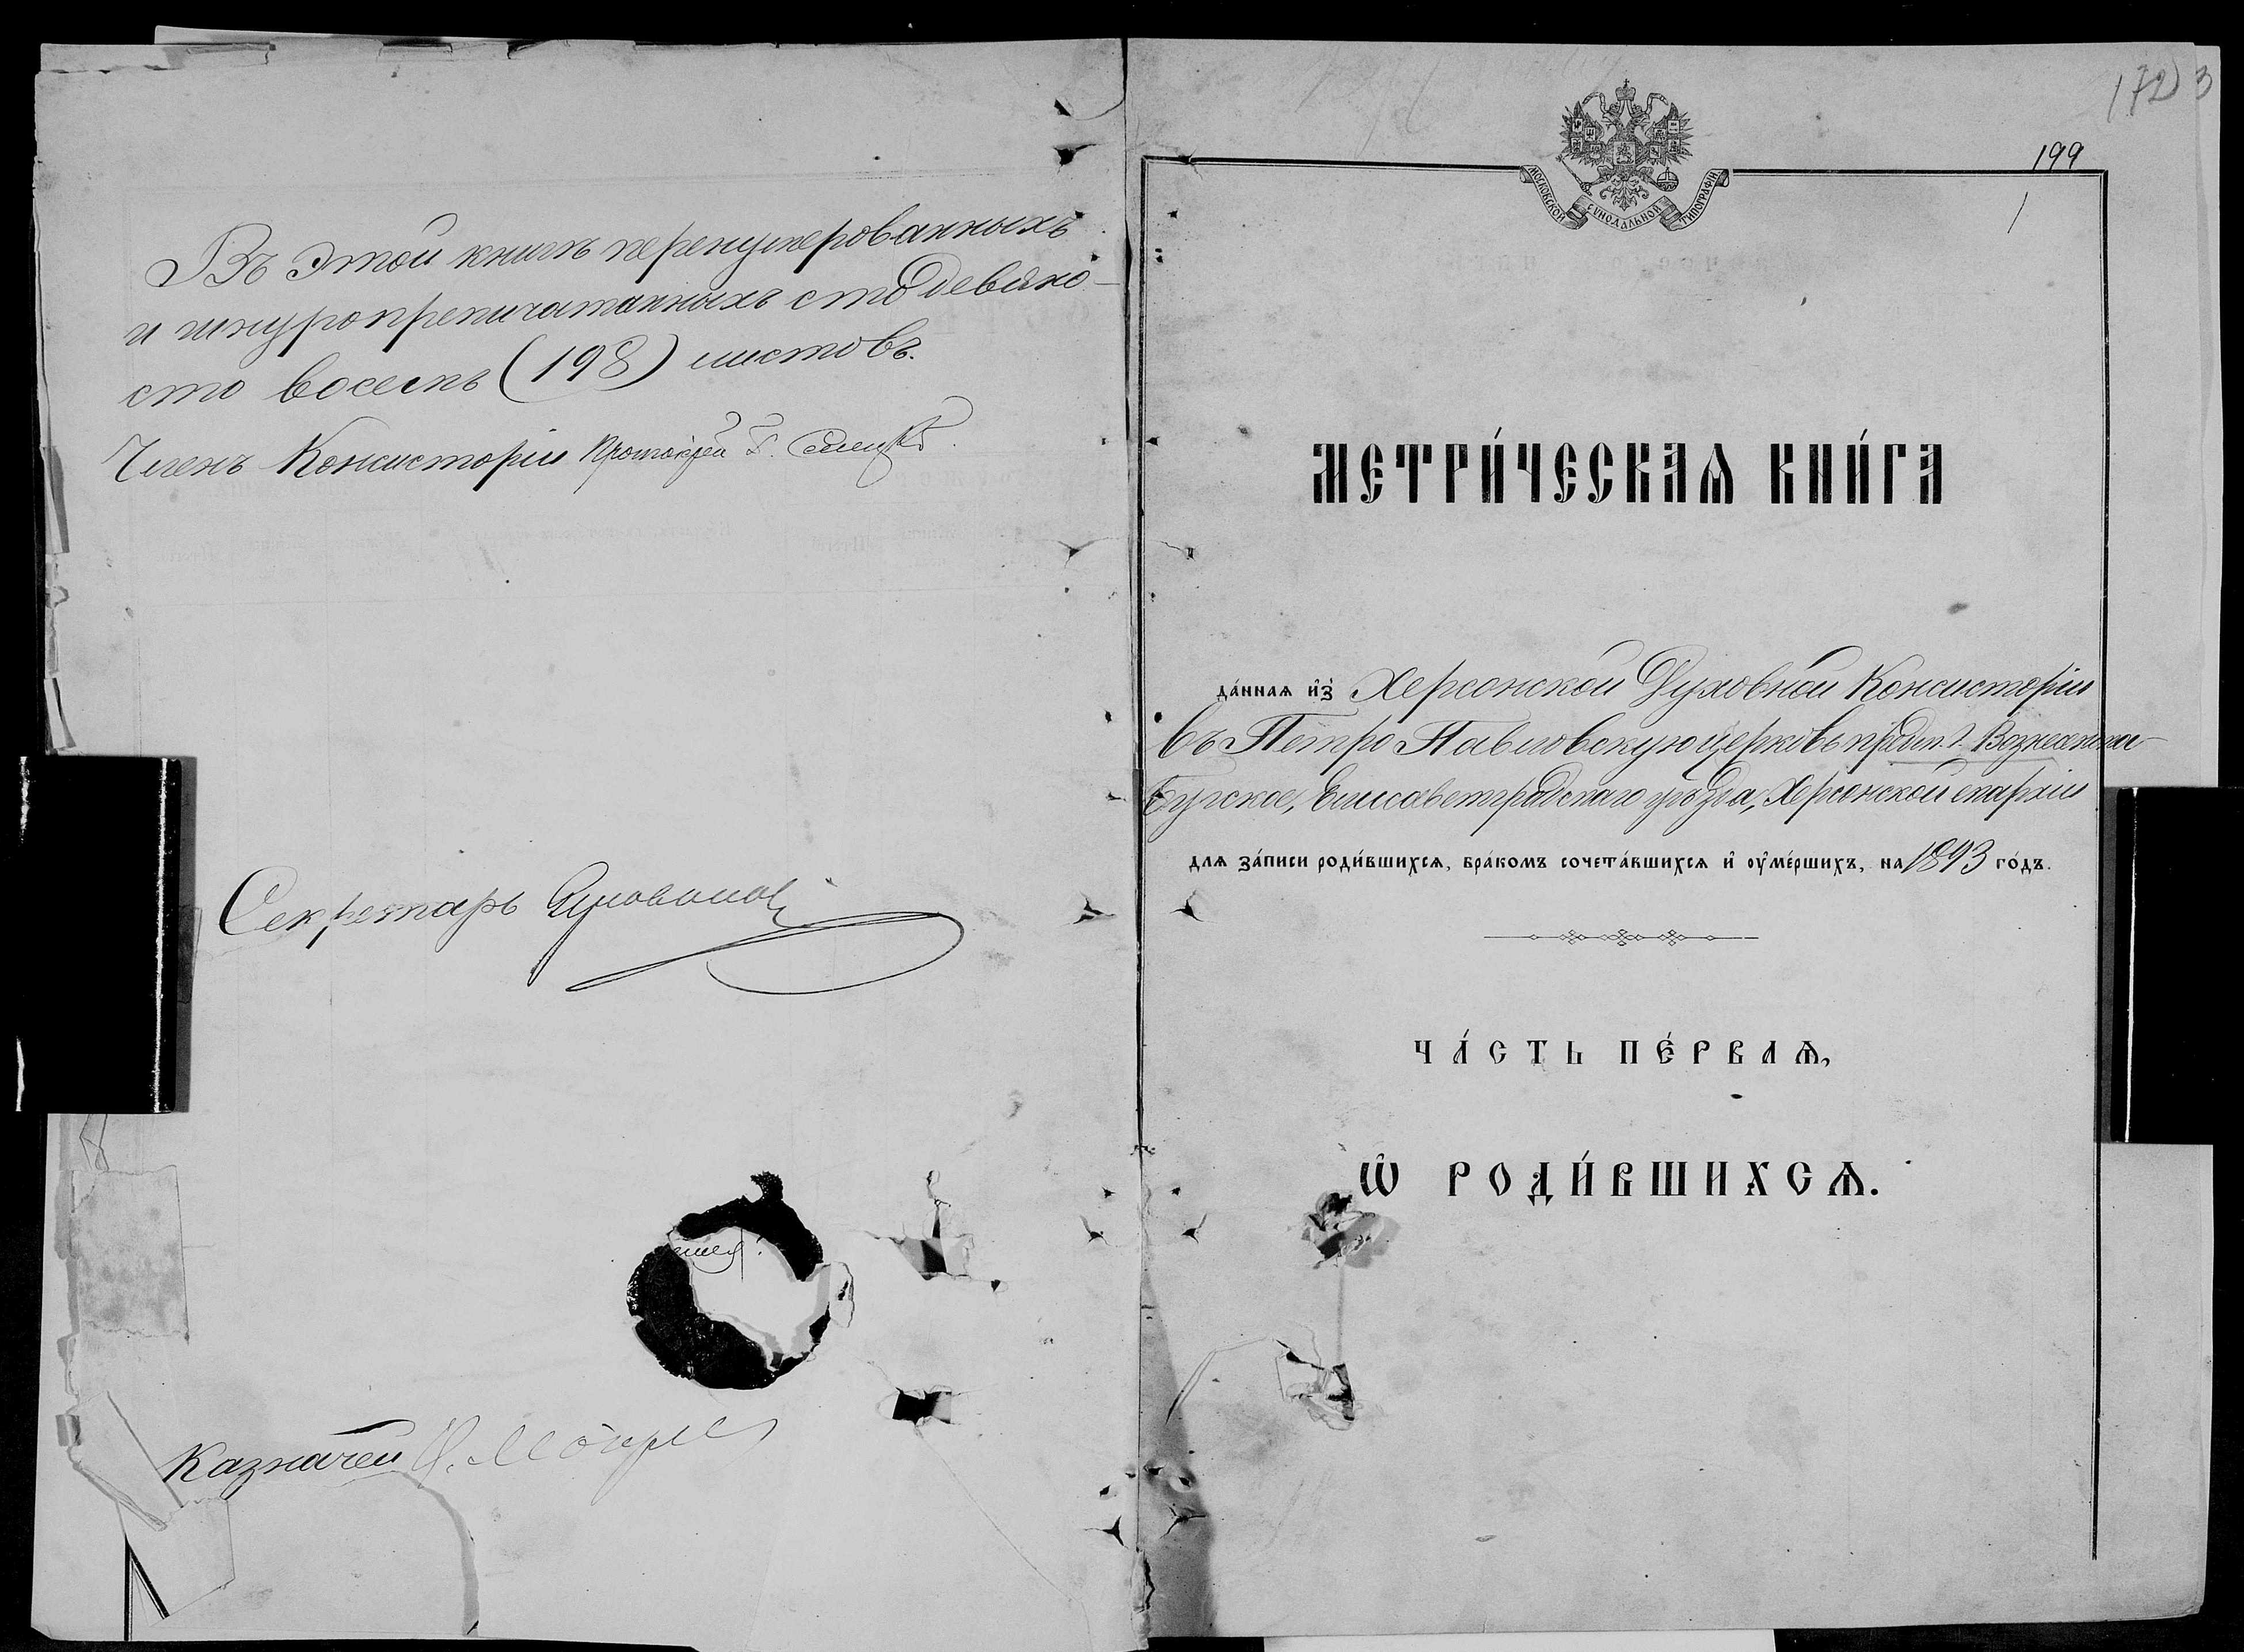 Въ этой книгѣ перенумерованныхъ
и шнуропрепичатанныхъ сто девяно-
сто восемь (198) листовъ.
Членъ Консисторіи Протоіерей
Секретарь
Казначей
172 3
199
1
МОСКОВСКОЙ СѴНОДАЛЬНОЙ ТИПОГРАФІИ
МЕТРИ́ЧЕСКАѦ КНИ́ГА
да́ннаѧ и҆з̾ Херсонской Духовной Консисторіи
въ Петро Павловскую церковь предм. г. Вознесенска
Бугское, Елисаветградскаго уѣзда, Херсонской епархіи
длѧ за́писи роди́вшихсѧ, бра́комъ сочета́вшихсѧ и҆ ᲂу҆ме́ршихъ, на 1893 го́дъ.
ЧА́СТЬ ПЕ́РВАѦ,
Ѡ҆ РОДИ́ВШИХСѦ.